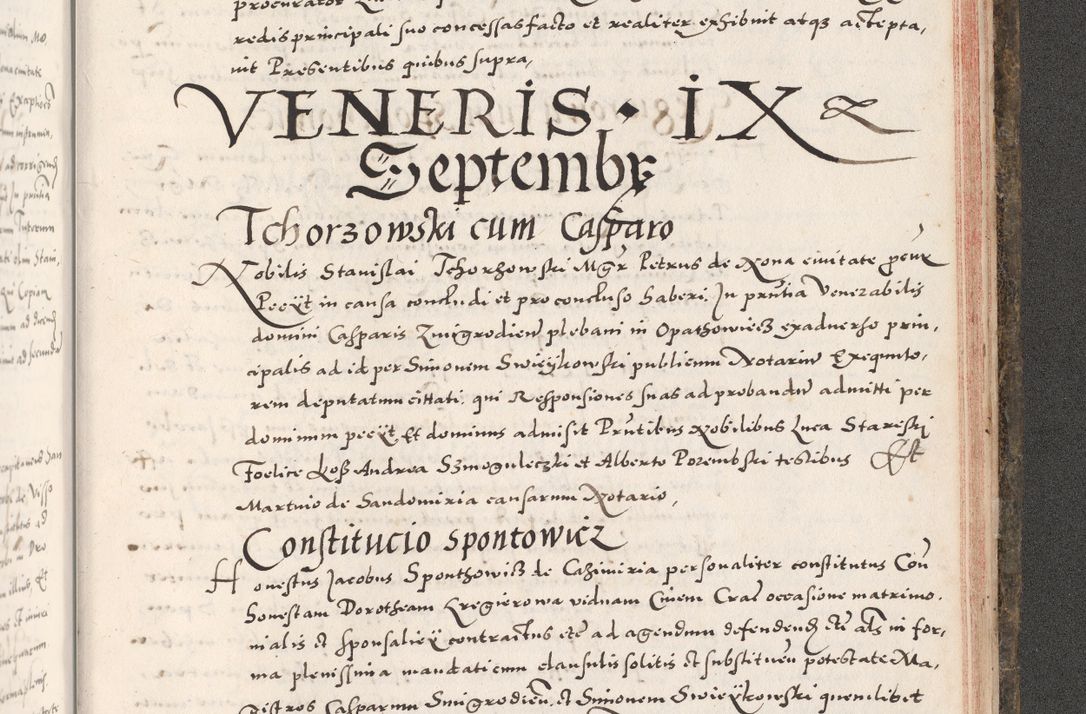 redis principali suo concessas facto et realiter exhibuit atqz accepta,
uit Presentibus quibus supra,
VENERIS · IX
Septembr
Tchorzowski cum Casparo
Nobilis Stanislai Tchorzowski Mgr Petrus de Xona civitate procur
Pecÿt in causa concludi et pro concluso haberi. In pruntia Venerabilis
domini Casparis Zmigrodien plebani in Opathowiecz exadverso prin,
cipalis ad id per Simonem Swieÿkowski publicum Notariu Exequuto,
rem deputatum cittati, qui Responsiones suas ad probandu admitti per
dominum pecÿt, Et dominus admisit Pruntibus Nobilibus Luca Stareski
Foelice Koss Andrea Szmoguleczki et Alberto Porembski testibus Et
Martino de Sandomiria causarum Notario,
Constitucio Spontowicz
Honestus Jacobus Sponthowicz de Cazimiria personaliter constitutus Con
honestam Dorotheam Kregierowa viduam Civem Crac occasione matrimo.
nialis et sponsalicÿ contractus etc ad agendum defendend etc als in for,
ma plenissima mandati cum clausulis solitis et substituen potestate Ma,
gistros Casparum Smigrodien, et Simonem Swieÿkowski quemlibet